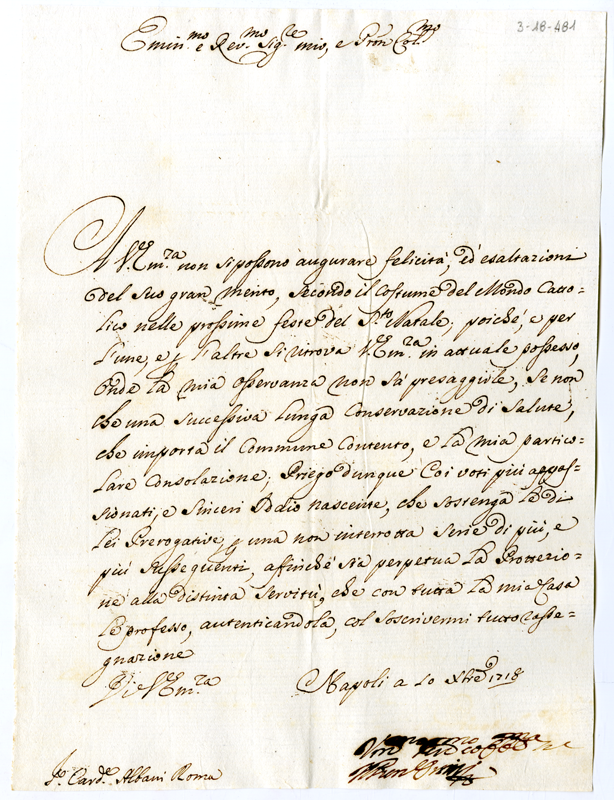 3-18-481
Emin.mo e Rev.mo Sig.re mio, e Pron Col.mo
A V.Em.za non si possono augurare felicità, ed esaltazioni
del suo gran merito, secondo il costume del Mondo Catto=
lico nelle prossime feste del S.to Natale, poiché, e per
l'une, e l'altre si ritrova V.Em.za in actuale possesso,
onde la mia osservanza non sà presaggirle, se non
che una successiva lunga conservazione di salute,
che importa il commune contento, e la mia partico=
lare consolazione; Priego dunque coi voti più appas=
sionati, e sinceri Iddio nascente, che sostenga le di
lei Prerogative una non interrotta serie di più, e
più susseguenti, affinché sia perpetua la Protezzio=
ne alla distinta servitù, che con tutta la mia Casa
le professo, autenticandola, col soscrivermi tutto rasse=
gnazione
Di V.Em.za
Napoli a 10 Xbre 1718
Sr. Card.e Albani Roma